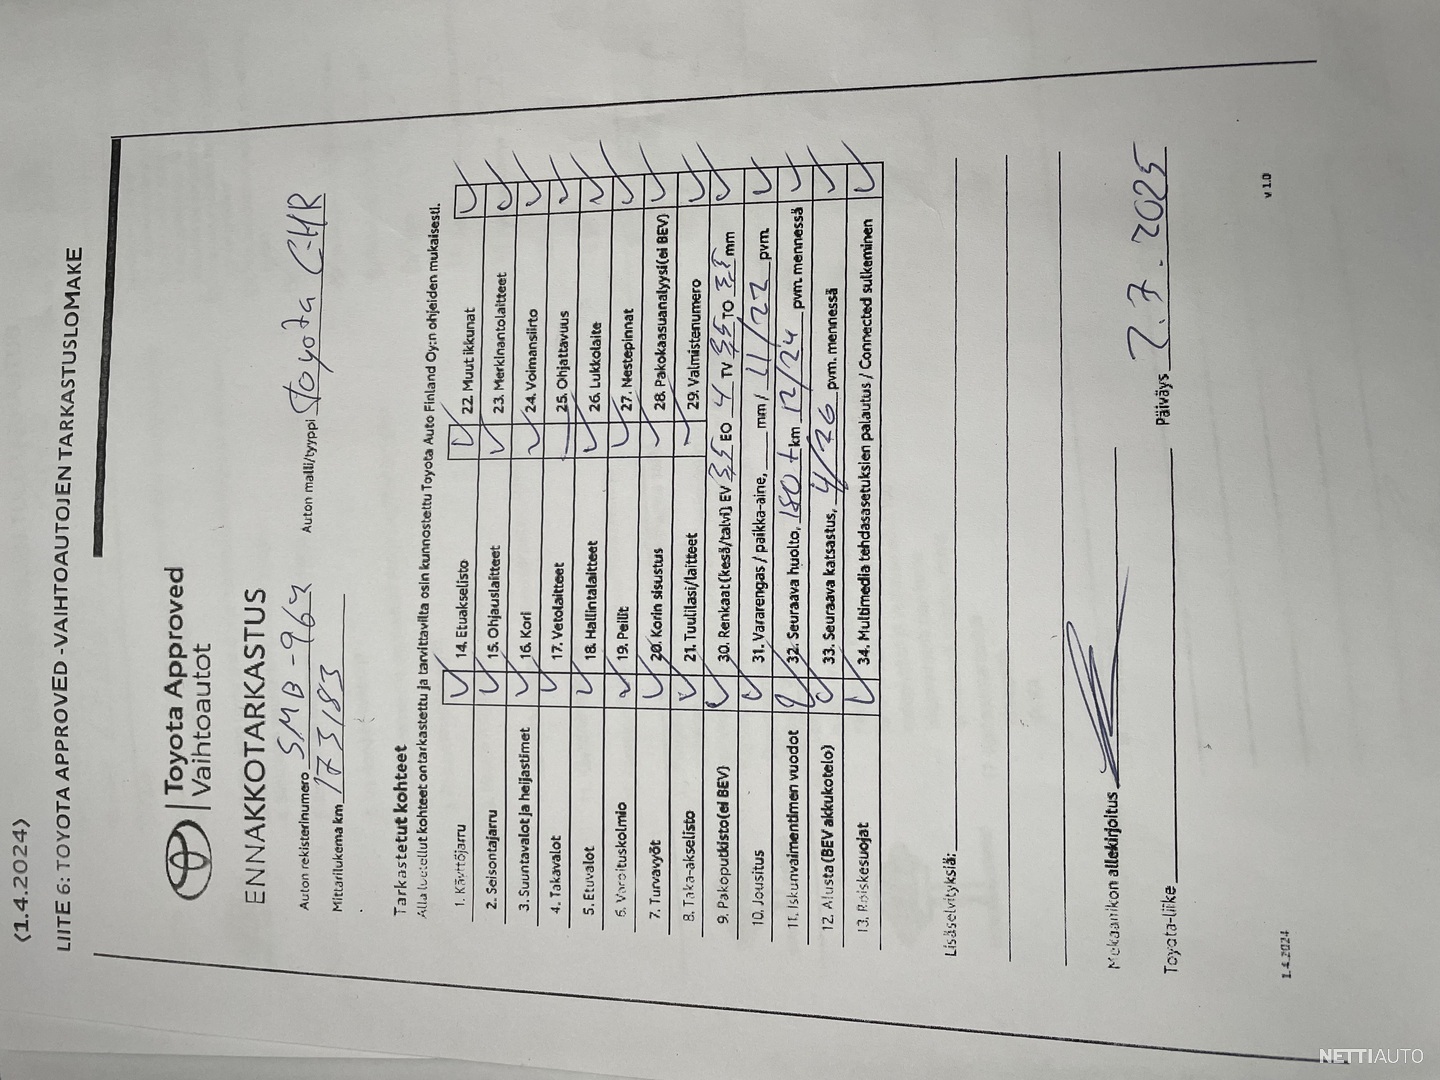 (1.4.2024)
LIITE 6: TOYOTA APPROVED -VAIHTOAUTOJEN TARKASTUSLOMAKE
Toyota Approved
Vaihtoautot
ENNAKKOTARKASTUS
Auton rekisterinumero SMB-964 Auton malli/tyyppi Toyota C-HR
Mittarilukema km 173183
Tarkastetut kohteet
Alla luetellut kohteet on tarkastettu ja tarvittavilta osin kunnostettu Toyota Auto Finland Oy:n ohjeiden mukaisesti.
1. Käyttöjarru 14. Etuakselisto 22. Muut ikkunat
2. Seisontajarru 15. Ohjauslaitteet 23. Merkinantolaitteet
3. Suuntavalot ja heijastimet 16. Kori 24. Voimansiirto
4. Takavalot 17. Vetolaitteet 25. Ohjattavuus
5. Etuvalot 18. Hallintalaitteet 26. Lukkolaite
6. Varoituskolmio 19. Peilit 27. Nestepinnat
7. Turvavyöt 20. Korin sisustus 28. Pakokaasuanalyysi (ei BEV)
8. Taka-akselisto 21. Tuulilasi/laitteet 29. Valmistenumero
9. Pakoputkisto (ei BEV) 30. Renkaat (kesä/talvi) EV 3,5 EO 4 TV 3,5 TO 3,5 mm
10. Jousitus 31. Vararengas / paikka-aine, mm/ 11/22 pvm.
11. Iskunvaimentimen vuodot 32. Seuraava huolto, 180 t km 12/24 pvm. mennessä
12. Alusta (BEV akkukotelo) 33. Seuraava katsastus, 4/26 pvm. mennessä
13. Roiskesuojat 34. Multimedia tehdasasetuksien palautus / Connected sulkeminen
Lisäselvityksiä:
Mekaanikon allekirjoitus
Toyota-liike Päiväys 2.7.2025
1.4.2024 v 1.0
NETTIAUTO